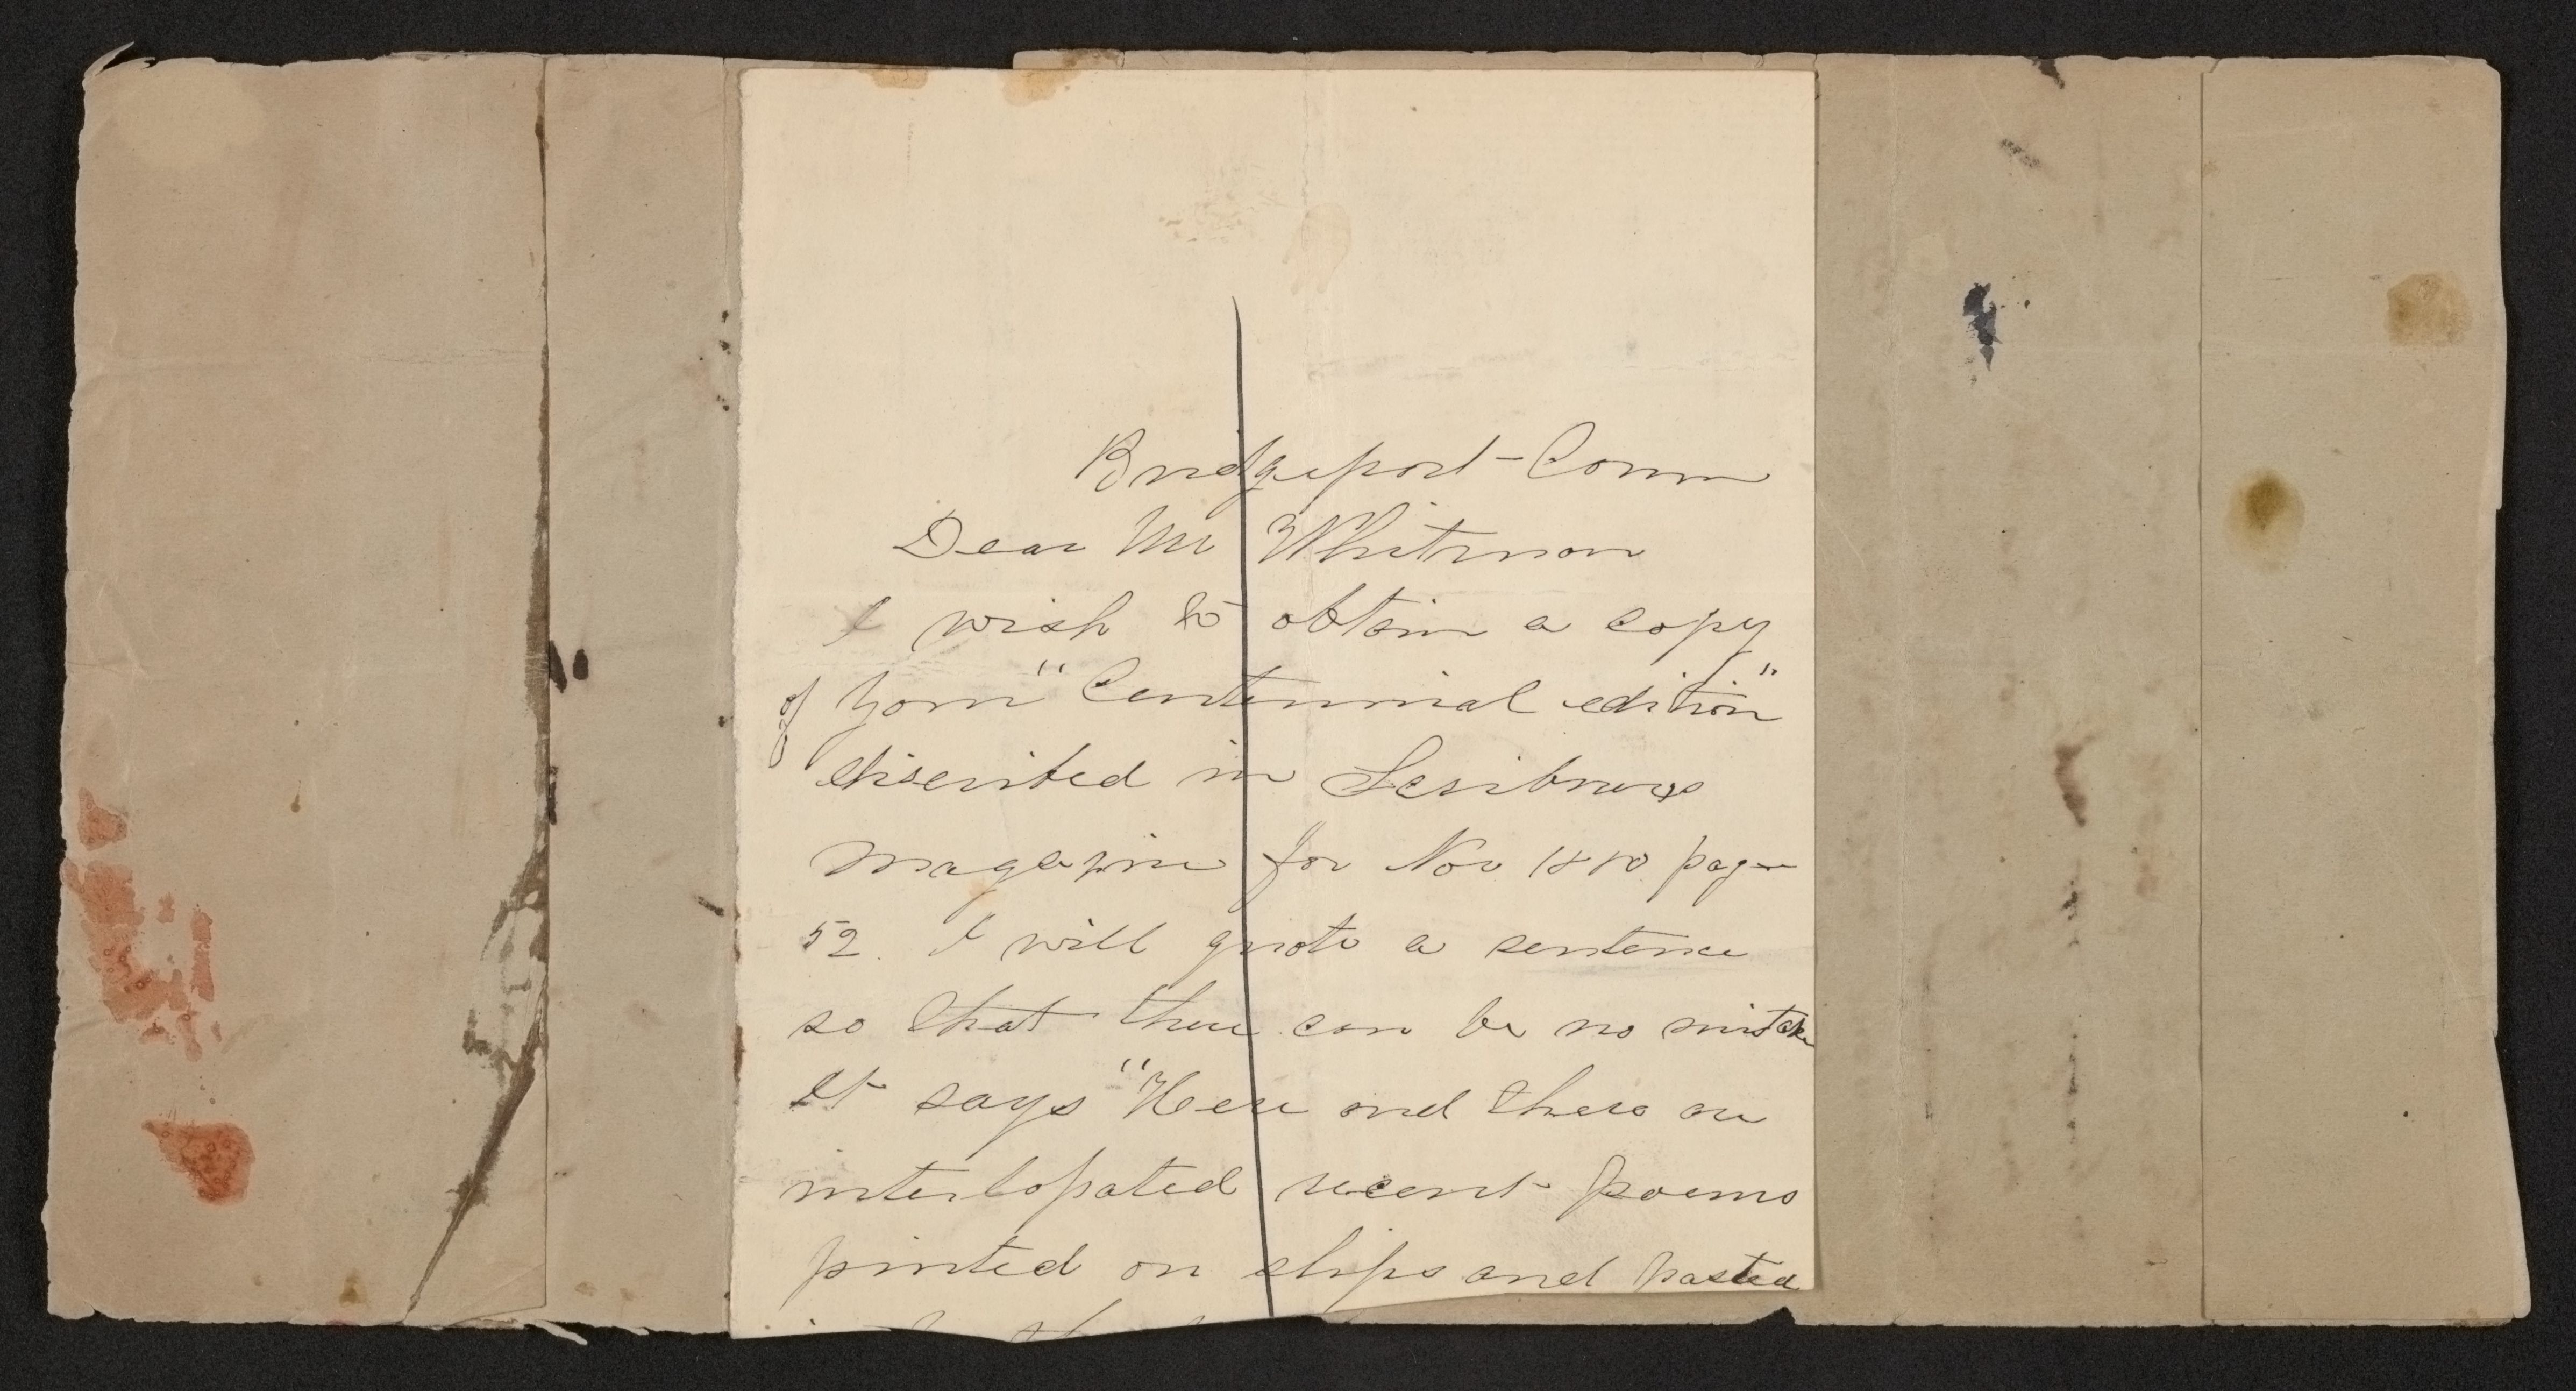 Bridgeport - Conn
Dear Mr Whitman
I wish to obtain a copy
of your "Centennial edition"
discribed in Scribners
Magazine for Nov 1880 page
52. I will quote a sentence
so that there can be no mistake
It says "Here and there are
interlopated recent poems
printed on slips and pasted